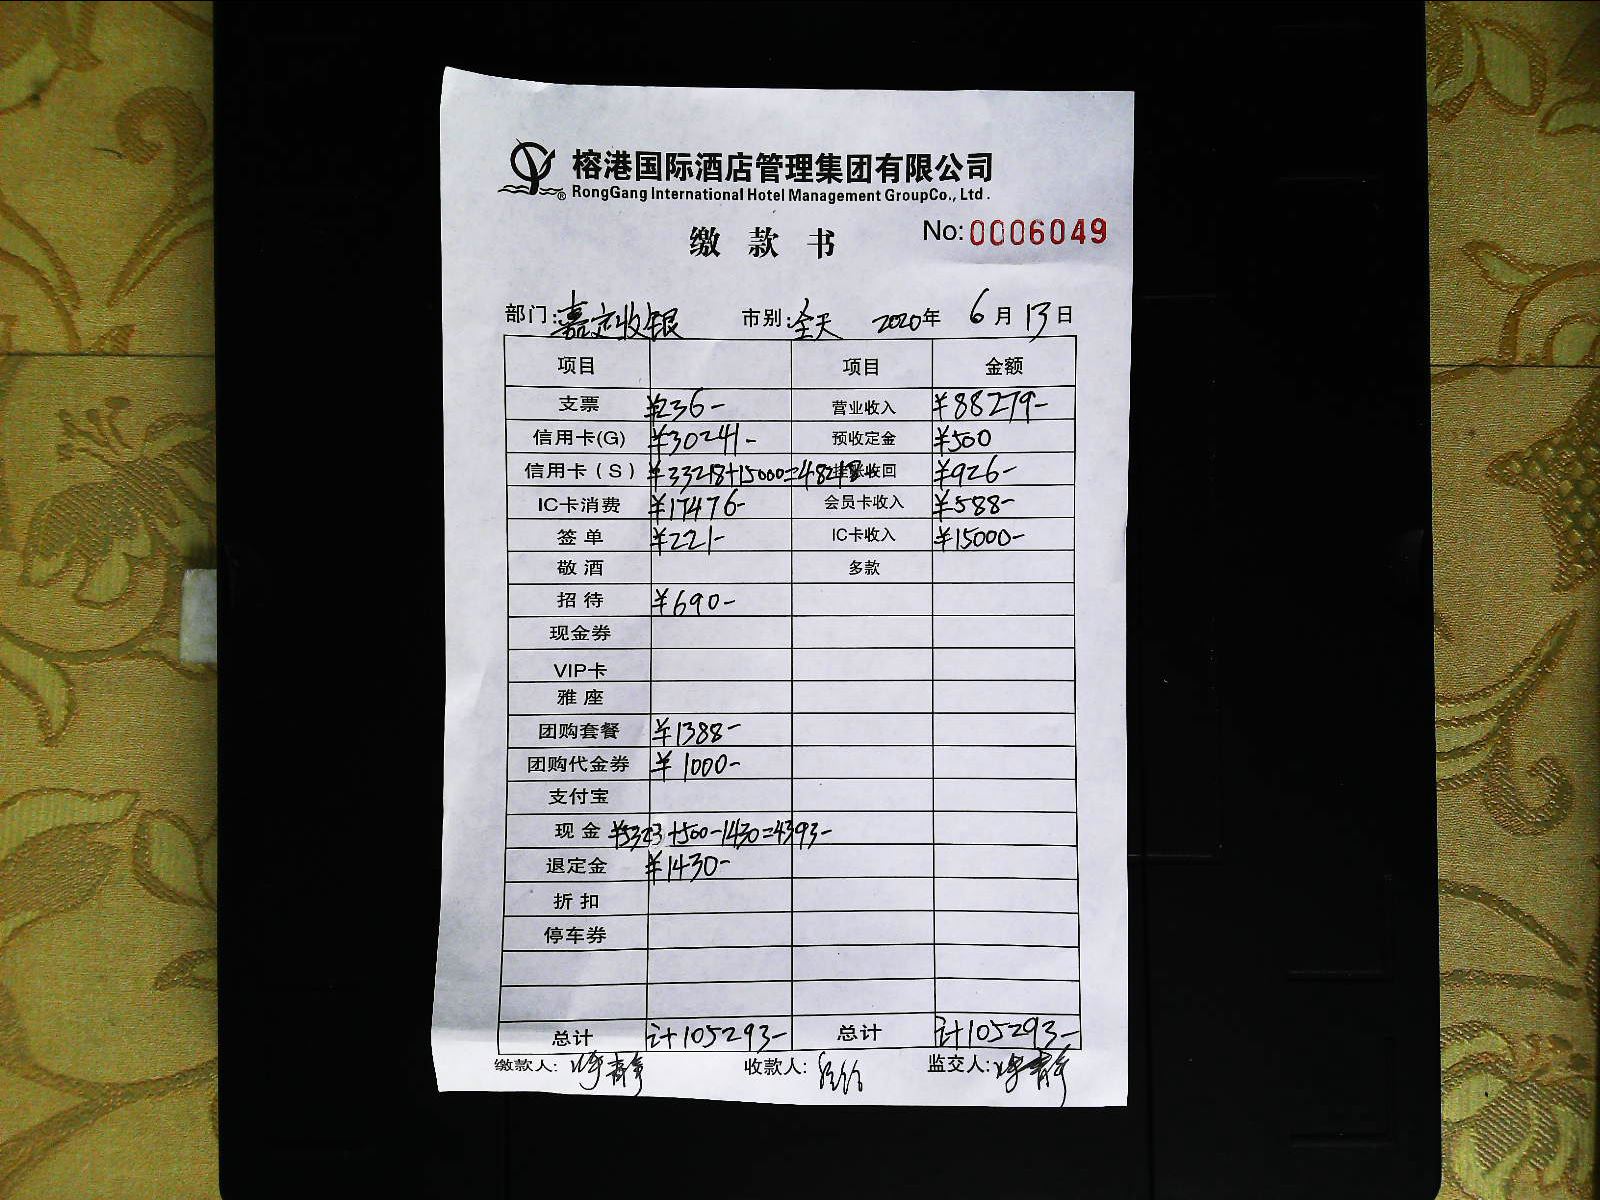 榕港国际酒店管理集团有限公司
RongGang International Hotel Management GroupCo., Ltd.
缴款书 No:0006049
部门:嘉定收银 市别:全天 2020年 6月 13日
项目 项目 金额
支票 ¥236- 营业收入 ¥88279-
信用卡(G) ¥30241- 预收定金 ¥500
信用卡(S) ¥33218+15000=48218- 挂账收回 ¥926-
IC卡消费 ¥17476- 会员卡收入 ¥588-
签单 ¥221- IC卡收入 ¥15000-
敬酒 多款
招待 ¥690-
现金券
VIP卡
雅座
团购套餐 ¥1388-
团购代金券 ¥1000-
支付宝
现金 ¥5323+500-1430=4393-
退定金 ¥1430-
折扣
停车券
总计 计105293- 总计 计105293-
缴款人: 收款人: 监交人: